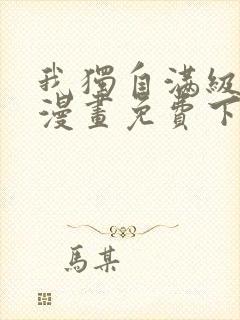 我獨自滿級
漫畫免費下
馬某